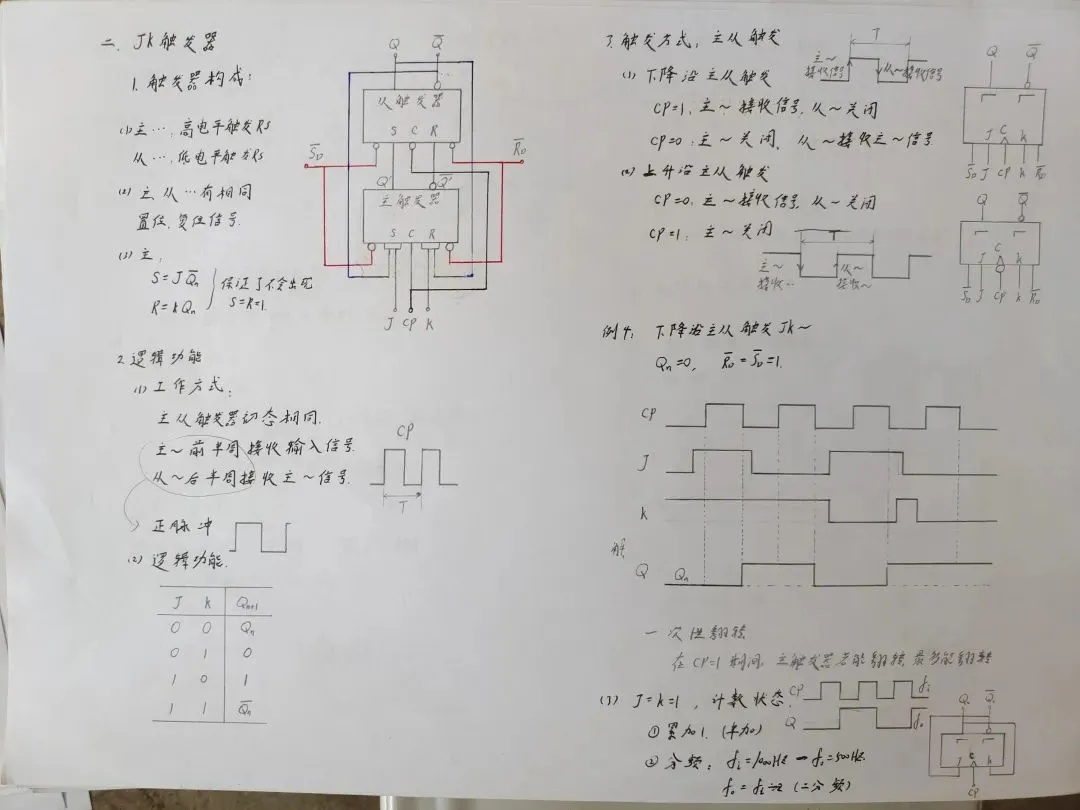 二、JK触发器
1. 触发器构成:
Q Q̅
从触发器
S C R
S̅D R̅D
Q' Q̅'
主触发器
S C R
J CP K
(1) 主…, 高电平触发RS
从…, 低电平触发RS
(2) 主、从…有相同
置位、复位信号.
(3) 主,
S=JQ̅n
R=KQn
保证了不会出现
S=R=1.
2. 逻辑功能
(1) 工作方式:
主从触发器动态相同.
主~前半周接收输入信号.
从~后半周接收主~信号.
CP
T
正脉冲
(2) 逻辑功能.
J K Qn+1
0 0 Qn
0 1 0
1 0 1
1 1 Q̅n
3. 触发方式: 主从触发
T
主~
接收信号
从~接收信号
(1) 下降沿主从触发
CP=1, 主~接收信号, 从~关闭
CP=0: 主~关闭, 从~接收主~信号
Q Q̅
J C K
S̅D J CP K R̅D
(2) 上升沿主从触发
CP=0: 主~接收信号, 从~关闭
CP=1: 主~关闭
T
主~
接收…
从~
接收~
Q Q̅
J C K
S̅D J CP K R̅D
例4: 下降沿主从触发JK~
Qn=0, R̅D=S̅D=1.
CP
J
K
解:
Q Qn
一次性翻转
在CP=1期间, 主触发器若能翻转, 最多能翻转
(3) J=K=1, 计数状态.
CP fi
Q fo
① 累加1.
② 分频: fi=1000Hz — fo=500Hz.
fo=fi÷2 (二分频)
Q Q̅
J C K
CP